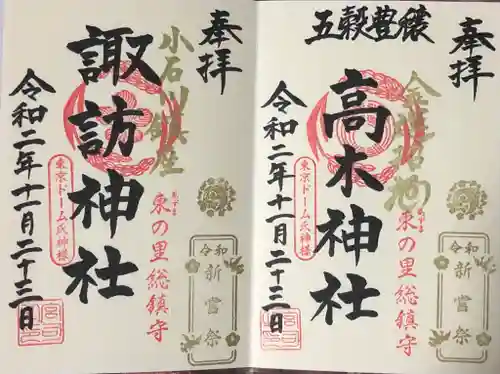 奉拝
小石川鎮座
諏訪神社
東の里総鎮守
あずま
東京ドーム氏神様
令和二年十一月二十三日
令和
新嘗祭
五穀豊穣
奉拝
高木神社
東の里総鎮守
あずま
東京ドーム氏神様
令和二年十一月二十三日
令和
新嘗祭